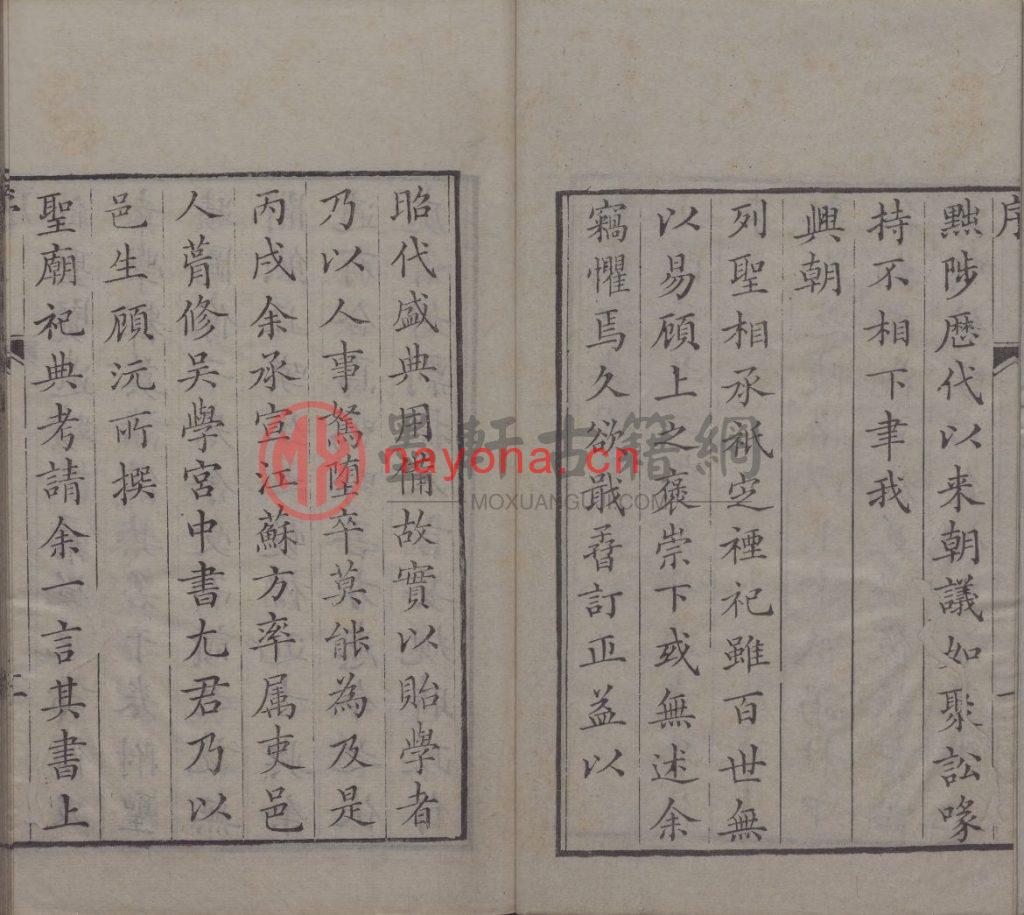 序
黜陟歷代以来朝議如聚訟喙
持不相下聿我
興朝
列聖相承祇定禋祀雖百世無
以易顧上之褒崇下或無述余
竊懼焉久欲訂正益以
一
昭代盛典用備故實以貽學者
乃以人事駑墮卒莫能為及是
丙戌余承宣江蘇方率属吏邑
人菁修吴學宮中書尢君乃以
邑生顧沅所撰
聖廟祀典考請余一言其書上
墨軒古籍網
nayona.cn
MOXUANGUJI.COM